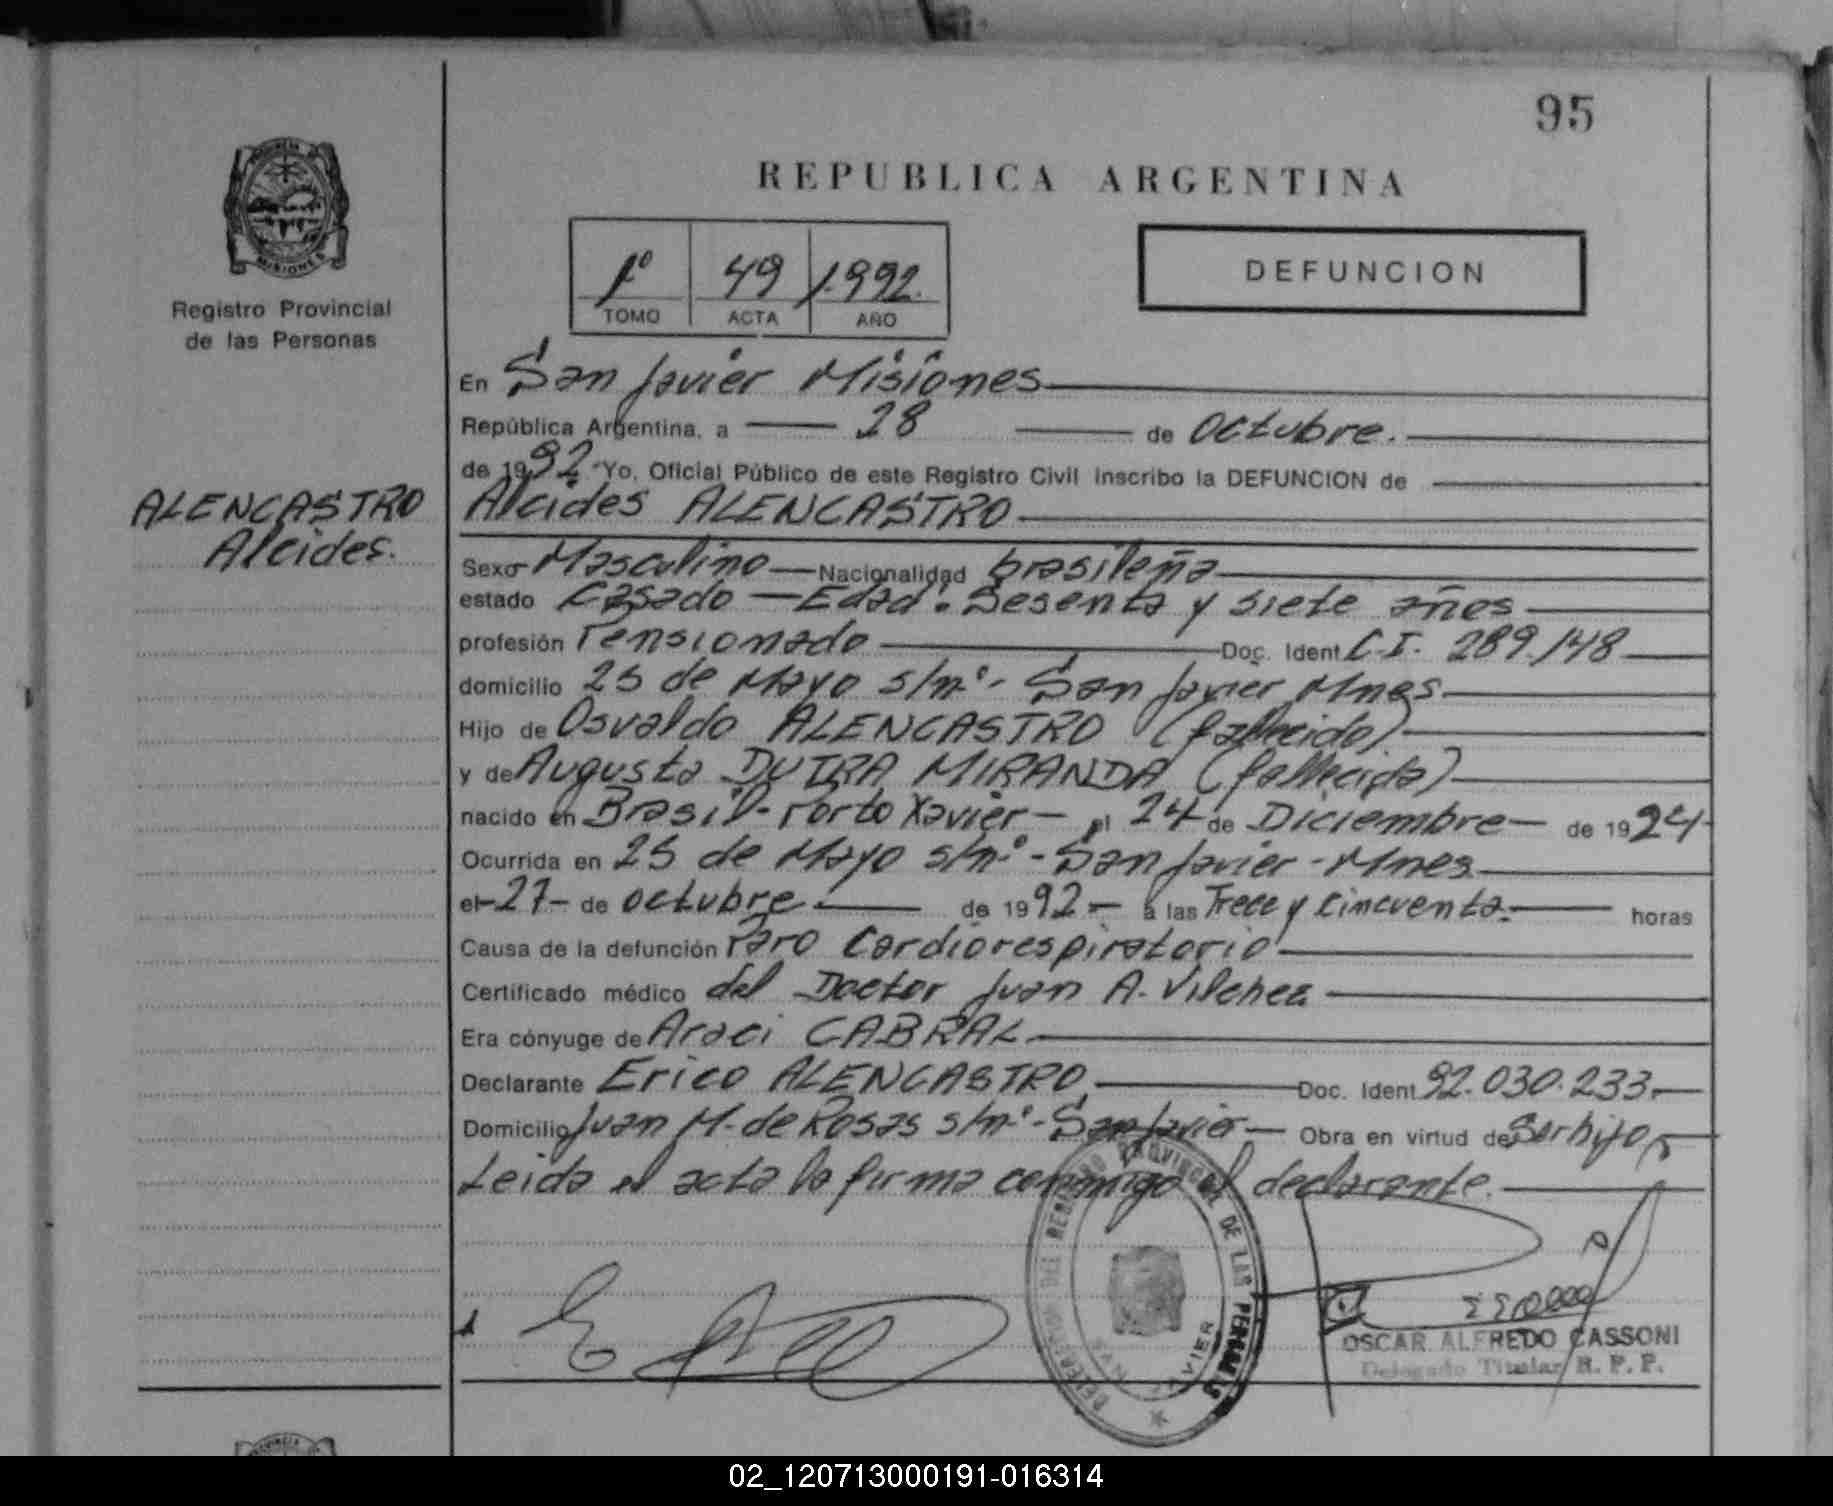 95
REPUBLICA ARGENTINA
PROVINCIA DE
MISIONES
Registro Provincial
de las Personas
1º 49 1.992.
TOMO ACTA AÑO
DEFUNCION
En San Javier Misiones
República Argentina, a 28 de Octubre.
de 1992 Yo, Oficial Público de este Registro Civil Inscribo la DEFUNCION de
ALENCASTRO
Alcides.
Alcides ALENCASTRO
Sexo Masculino Nacionalidad brasileña
estado Casado - Edad: Sesenta y siete años
profesión Pensionado Doc. Ident C.I. 289.148
domicilio 25 de Mayo s/nº - San Javier Mnes
Hijo de Osvaldo ALENCASTRO (fallecido)
y de Augusta DUTRA MIRANDA (fallecida)
nacido en Brasil - Porto Xavier - el 24 de Diciembre - de 1924
Ocurrida en 25 de Mayo s/nº - San Javier - Mnes
el 27 de octubre de 1992 - a las Trece y Cincuenta horas
Causa de la defunción Paro Cardiorespiratorio
Certificado médico del Doctor Juan A. Vilchez
Era cónyuge de Araci CABRAL
Declarante Erico ALENCASTRO Doc. Ident 92.030.233
Domicilio Juan M. de Rosas s/nº - San Javier - Obra en virtud de Ser hijo
Leida el acta la firma conmigo el declarante.
DELEGACION DEL REGISTRO PROVINCIAL DE LAS PERSONAS
SAN JAVIER
OSCAR ALFREDO CASSONI
Delegado Titular R. P. P.
PROVINCIA
02_120713000191-016314